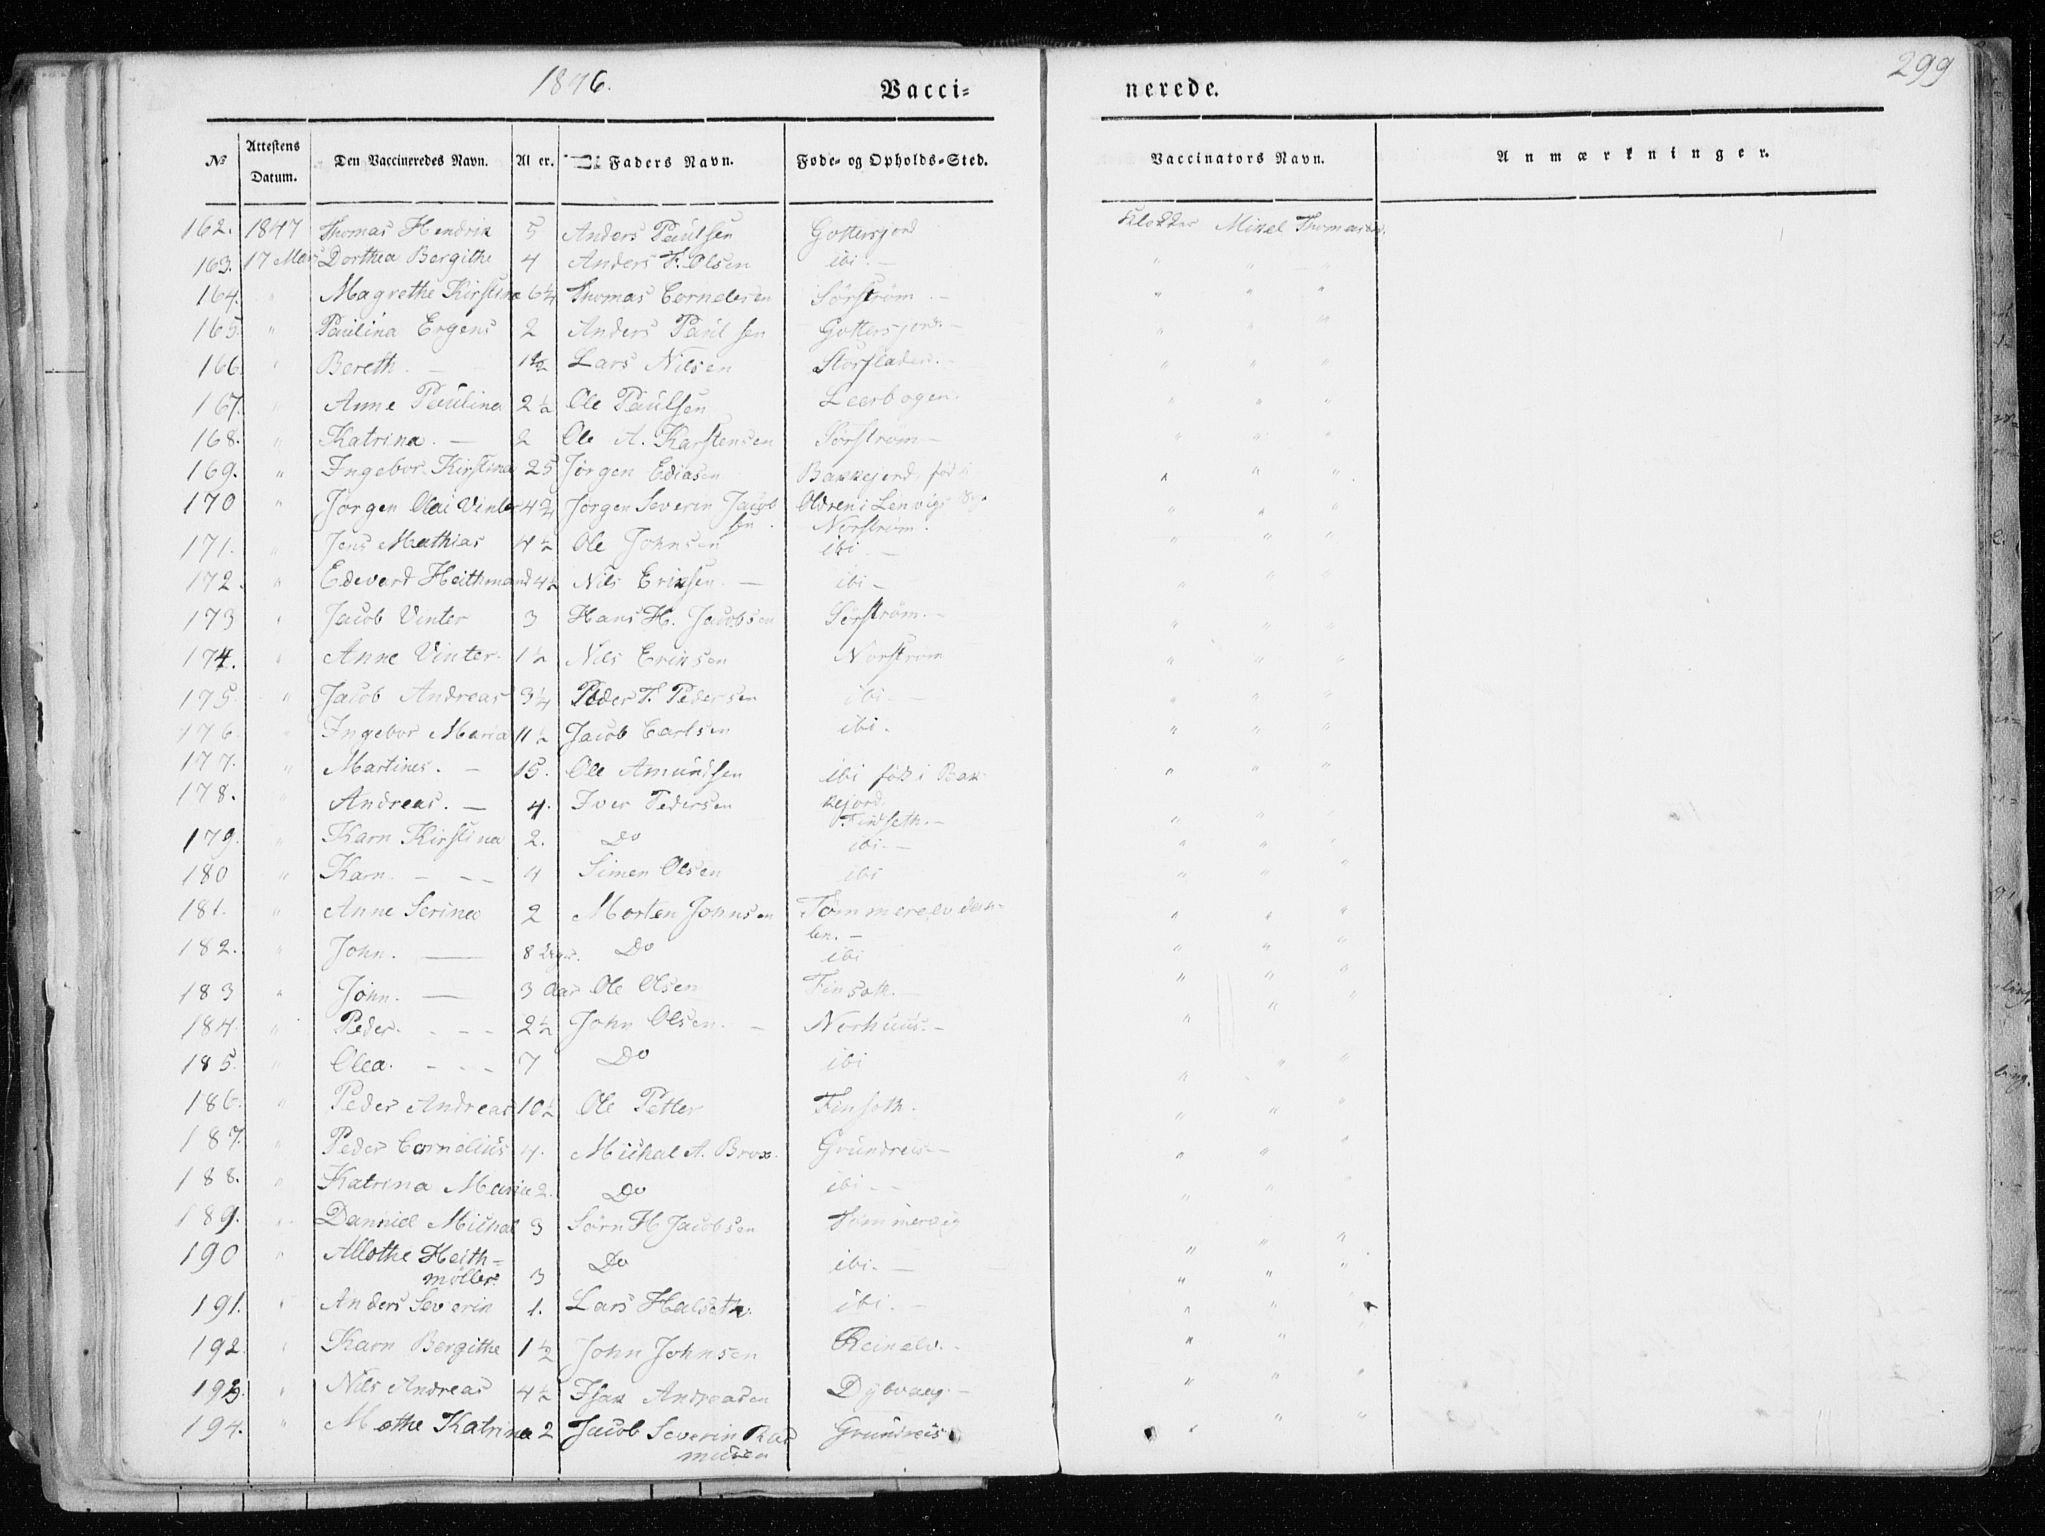 1846.
Vacci= nerede.
299
№ Attestens Datum. Den Vaccineredes Navn. Al er. Faders Navn. Føde- og Opholds-Sted. Vaccinators Navn. Anmærkninger.
162. 1847 Thomas Hendrik 5 Anders Paulsen Gottersjord Klokker Mikel Thomasen
163. 17 Mars Dorthea Bergithe 4 Anders F. Olsen ibi. — " " "
164. " Magrethe Kirstina 6¼ Thomas Cornelesen Sørstrøm. — " " "
165. " Paulina Ergens 2 Anders Paulsen Gottersjord. — " " "
166. " Bereth. — 1½ Lars Nilsen Storsladen. — " " "
167. " Anne Paulina 2½ Ole Paulsen Leerbogen. " " "
168. " Katrina. — 2 Ole A. Karstensen Sørstrøm — " " "
169. " Ingebor Kirstina 25 Jørgen Ediasen Bakkejord, født i " " "
170 " Jørgen Olai Vinter 4½ Jørgen Severin Jacob Oldren i Lenvigs " " "
sen. Norstrøm.
171. " Jens Mathias 4½ Ole Johnsen ibi — " " "
172. " Edevard Heithmand 4½ Nils Eriksen. — ibi — " " "
173 " Jacob Vinter 3 Hans H. Jacobsen Sørstrøm. — " " "
174. " Anne Vinter. 1½ Nils Eriksen Norstrøm " " "
175. " Jacob Andreas 3¼ Peder T. Pedersen ibi. — " " "
176. " Ingebor Maria 11½ Jacob Carlsen ibi. " " "
177. " Martines. — 15. Ole Amundsen ibi født i Bak " " "
178. " Andreas. — 4. Iver Pedersen kejord.
Findseth. — " "
179. " Karn Kirstina 2. Do ibi. — " " "
180 " Karn. — — 4 Simen Olsen ibi " " "
181. " Anne Serine 2 Morten Johnsen Tømmerelvdah-
len. — " " "
182. " John. — 8 Uger. Do ibi " " "
183 " John. — 3 Aar Ole Olsen Finseth. — " " "
184. " Peder. - - - 2½ John Olsen. — Norhuus. — " " "
185. " Olea. - - - 7 Do ibi " " "
186. " Peder Andreas 10½ Ole Petter Finseth. " " "
187. " Peder Cornelius 4. Michal A. Brox. Grundreis. — " " "
188. " Katrina Maria 2. Do ibi - — " " "
189. " Danniel Michal 3 Sørn H. Jacobsen Tømmervig " " "
190 " Allethe Heith=
møller. 3 Do ibi. — " " "
191. " Anders Severin 1. Lars Halseth. ibi. — " " "
192. " Karn Bergithe 1½ John Johnsen Reinelv. — " " "
193. " Nils Andreas 4½ Isak Andreasen Dybvaag. — " " "
194. " Methe Katrina 2 Jacob Severin Ras Grundreis " " "
musen